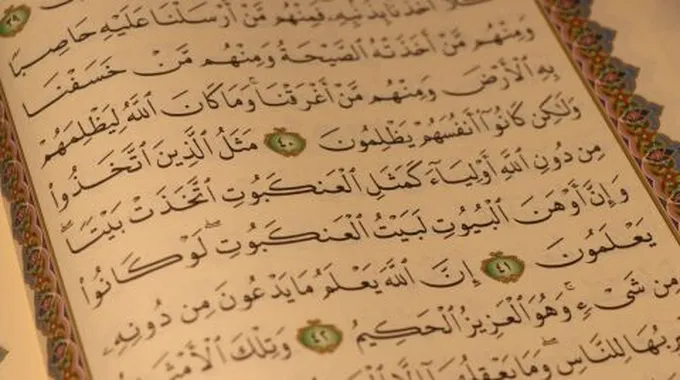 ٣٩ أَخَذْنَا بِذَنۢبِهِۦ فَمِنْهُم مَّنْ أَرْسَلْنَا عَلَيْهِ حَاصِبًا
وَمِنْهُم مَّنْ أَخَذَتْهُ ٱلصَّيْحَةُ وَمِنْهُم مَّنْ خَسَفْنَا
بِهِ ٱلْأَرْضَ وَمِنْهُم مَّنْ أَغْرَقْنَا ۚ وَمَا كَانَ ٱللَّهُ لِيَظْلِمَهُمْ
وَلَٰكِن كَانُوٓا۟ أَنفُسَهُمْ يَظْلِمُونَ ٤٠ مَثَلُ ٱلَّذِينَ ٱتَّخَذُوا۟
مِن دُونِ ٱللَّهِ أَوْلِيَآءَ كَمَثَلِ ٱلْعَنكَبُوتِ ٱتَّخَذَتْ بَيْتًا ۖ
وَإِنَّ أَوْهَنَ ٱلْبُيُوتِ لَبَيْتُ ٱلْعَنكَبُوتِ ۖ لَوْ كَانُوا۟
يَعْلَمُونَ ٤١ إِنَّ ٱللَّهَ يَعْلَمُ مَا يَدْعُونَ مِن دُونِهِۦ
مِن شَىْءٍ ۚ وَهُوَ ٱلْعَزِيزُ ٱلْحَكِيمُ ٤٢ وَتِلْكَ ٱلْأَمْثَٰلُ
لِلنَّاسِ ۖ وَمَا يَعْقِلُهَآ إِلَّا